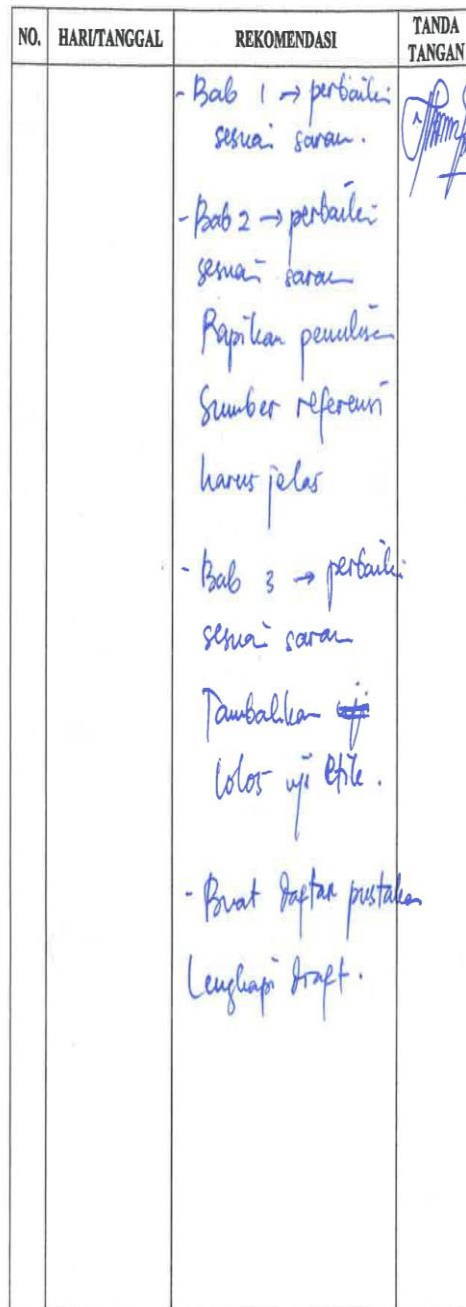 NO.
HARI/TANGGAL
REKOMENDASI
TANDA
TANGAN
- Bab 1 → perbaiki
sesuai saran.
- Bab 2 → perbaiki
sesuai saran
Rapikan penulisan
Sumber referensi
harus jelas
- Bab 3 → perbaiki
sesuai saran
Tambahkan uji
lolos uji etik.
- Buat daftar pustaka
Lengkapi draft.